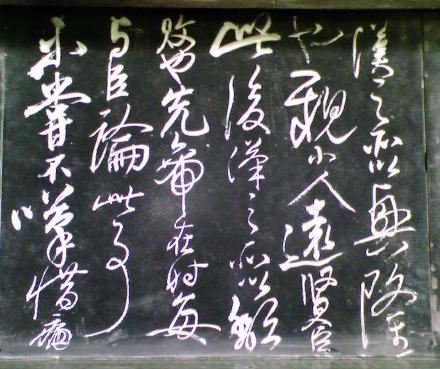 漢之所以興隆
也親小人遠賢臣
此後漢之所以傾
頹也先帝在時每
与臣論此事
未嘗不嘆惜痛